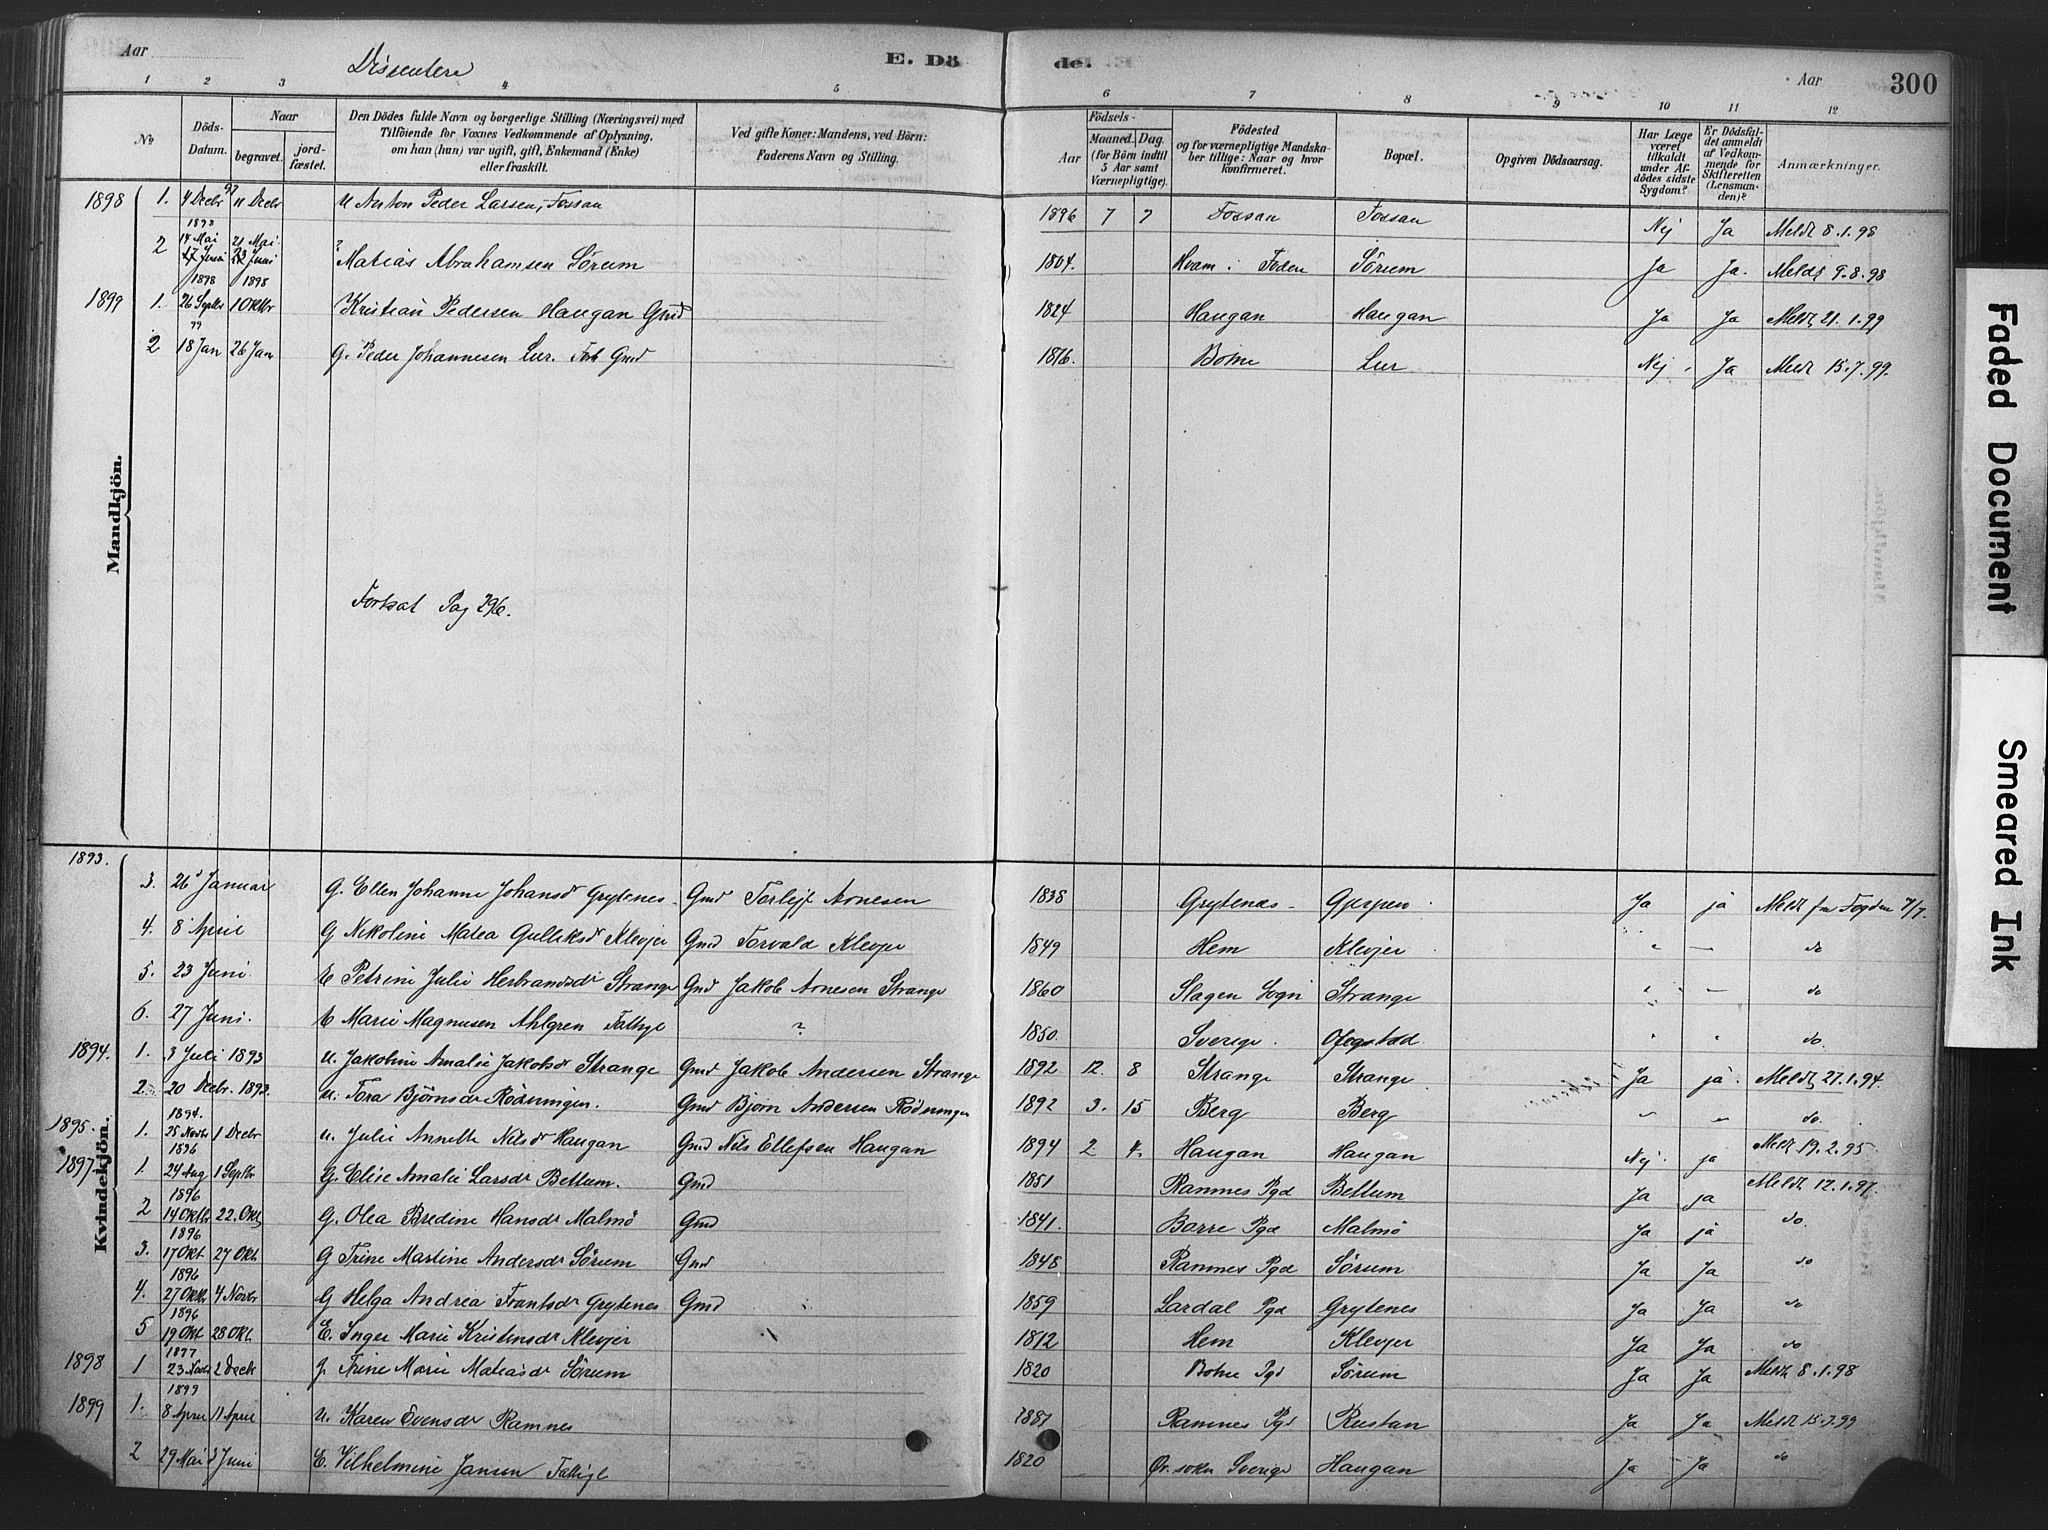 Aar
Dissentere
E. Döde.
Aar
300
1 2 3 4 5 6 7 8 9 10 11 12
No
Döds-Datum.
Naar
begravet.
jordfæstet.
Den Dödes fulde Navn og borgerlige Stilling (Næringsvei) med
Tilföiende for Voxnes Vedkommende af Oplysning,
om han (hun) var ugift, gift, Enkemand (Enke)
eller fraskilt.
Ved gifte Koner: Mandens, ved Börn:
Faderens Navn og Stilling.
Födsels-
Aar
Maaned. Dag.
(for Börn indtil
5 Aar samt
Værnepligtige).
Födested
og for værnepligtige Mandskaber tillige: Naar og hvor
konfirmeret.
Bopæl.
Opgiven Dödsaarsag.
Har Læge
været
tilkaldt
under Afdödes sidste
Sygdom?
Er Dödsfaldet anmeldt
af Vedkommende for
Skifteretten
(Lensmanden)?
Anmærkninger.
Mandkjön.
1898 1. 4 Decbr 97 11 Decbr U Anton Peder Larsen, Fossan 1896 7 7 Fossan Fossan Nej Ja Meldt 8.1.98
1898
2 14 Mai 21 Mai ? Matias Abrahamsen Sörum 1804. Hvam i Foden Sörum Ja Ja. Meldt 9.8.98
17 Juni 23 Juni
1898 1898
1899 1. 26 Septbr 1 Oktbr Kristian Pedersen Haugan Gmd 1824 Haugan Haugan Ja Ja Meldt 21.1.99
99
2 18 Jan 26 Jan G. Peder Johannesen Lur. Forh Gmd 1816. Botne Lur Nej Ja Meldt 15.7.99.
Fortsat Pag 296.
Kvindekjön.
1893.
3. 26 Januar G. Ellen Johanne Johansdr Grytenes Gmd Torleif Arnesen 1838 Grytenes Gjerpen Ja ja Meldt fra Fogden 7/7.
4. 8 April G Nikoline Matea Gulliksdr Klevjer Gmd Torvald Klevjer 1849 Hem Klevjer " — do
5. 23 Juni E Petrine Julie Herbrandsdr Strange Gmd Jakob Arnesen Strange 1860 Slagen Sogn Strange " — do
6. 27 Juni. E Marie Magnusen Ahlgren Fattige ? 1850 Sverige. Ofegstad " " do
1894. 1. 3 Juli 1893 U. Jakobine Amalie Jakobsdr Strange Gmd Jakob Andersen Strange 1892 12. 8 Strange Strange Ja ja Meldt 27.1.94.
2. 20 Decbr. 1893. U. Tora Björnsdr Rödningen. Gmd Bjørn Andersen Rödningen 1892 3. 15 Berg Berg " " do.
1894.
1895. 1. 25 Novbr 1 Decbr U. Julie Annette Nilsdr Haugan Gmd Nils Ellefsen Haugan 1894 2 4. Haugan Haugan Nej. ja Meldt 19.2.95
1896
1897 1. 24 Aug 1 Septbr G. Elise Amalie Larsdr Bettum. Gmd 1851 Ramnes Pgd Bettum Ja ja Meldt 12.1.97.
1896
2 14 Oktbr 22. Okt G. Olea Bredine Hansdr Malmö Gmd 1841. Borre Pgd Malmö Ja ja do
1896
3. 17 Okt 27 Okt G Trine Martine Andersdr Sörum Gmd 1848 Ramnes Pgd Sörum Ja Ja do
1896
4. 27 Oktbr 4 Novbr G Helga Andrea Frantsdr Grytenes Gmd 1859 Lardal Pgd Grytenes Ja Ja do
1896
5 19 Okt 28 Okt. E. Inger Marie Kristensdr Klevjer 1812 Hem Klevjer Ja Ja do
1897
1898 1 23 Novbr 2 Decb G. Trine Marie Matiasdr Sörum 1820 Botne Pgd Sörum Ja Ja Meldt 8.1.98
1899
1899 1. 8 April 11 April U. Karen Evensdr Ramnes 1887 Ramnes Pgd Rustan Ja Ja Meldt 15.7.99
2 29 Mai 3 Juni E. Vilhelmine Jansen Fattige 1820 Sverige Haugan Ja Ja do
Faded Document
Smeared Ink